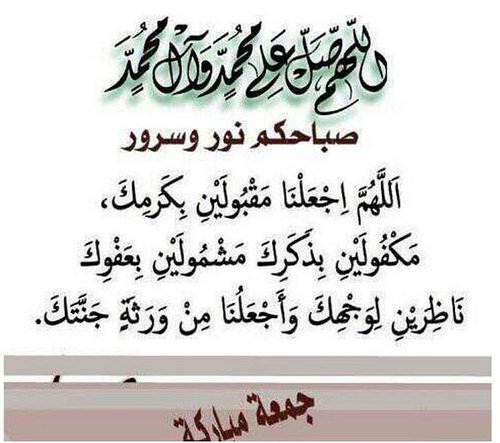 اللهم صل على محمد وآل محمد
صباحكم نور وسرور
اَللَّهُمَّ اِجْعَلْنَا مَقْبُولَيْنِ بِكَرَمِكَ،
مَكْفُولَيْنِ بِذَكَرِكَ مَشْمُولَيْنِ بِعَفْوِكَ
نَاظِرَيْنِ لِوَجْهِكَ وَأَجْعَلُنَا مِنْ وَرَثَةِ جَنَّتَكَ.
جمعة مباركة